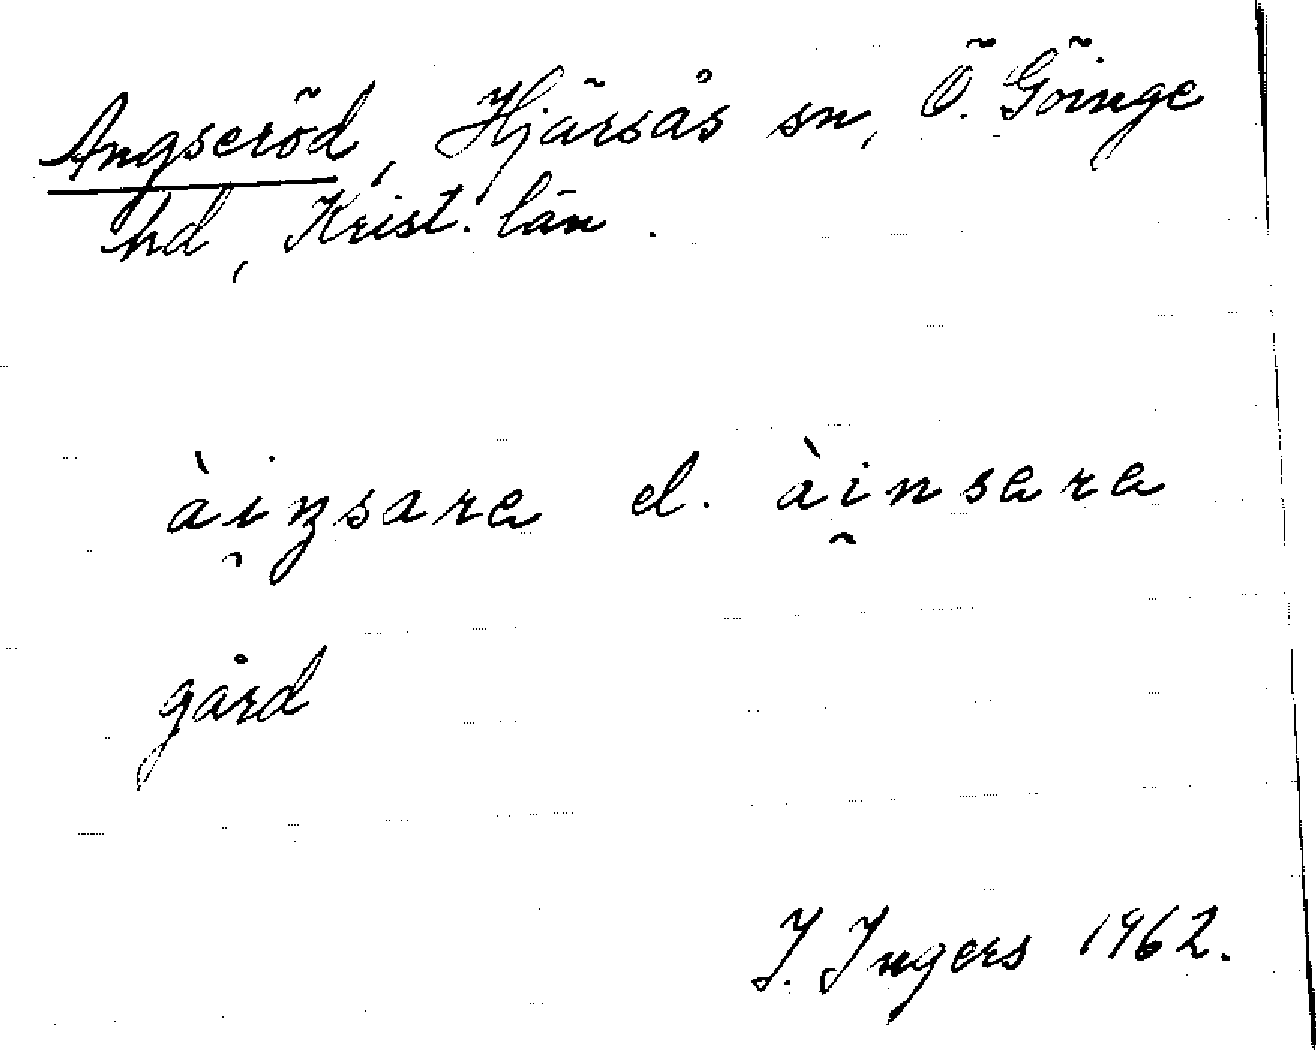 Angseröd, Hjärsås sn, Ö. Göinge
hd, Krist. län.
ài̯ŋsara el. ài̯nsara
gård
I. Ingers 1962.